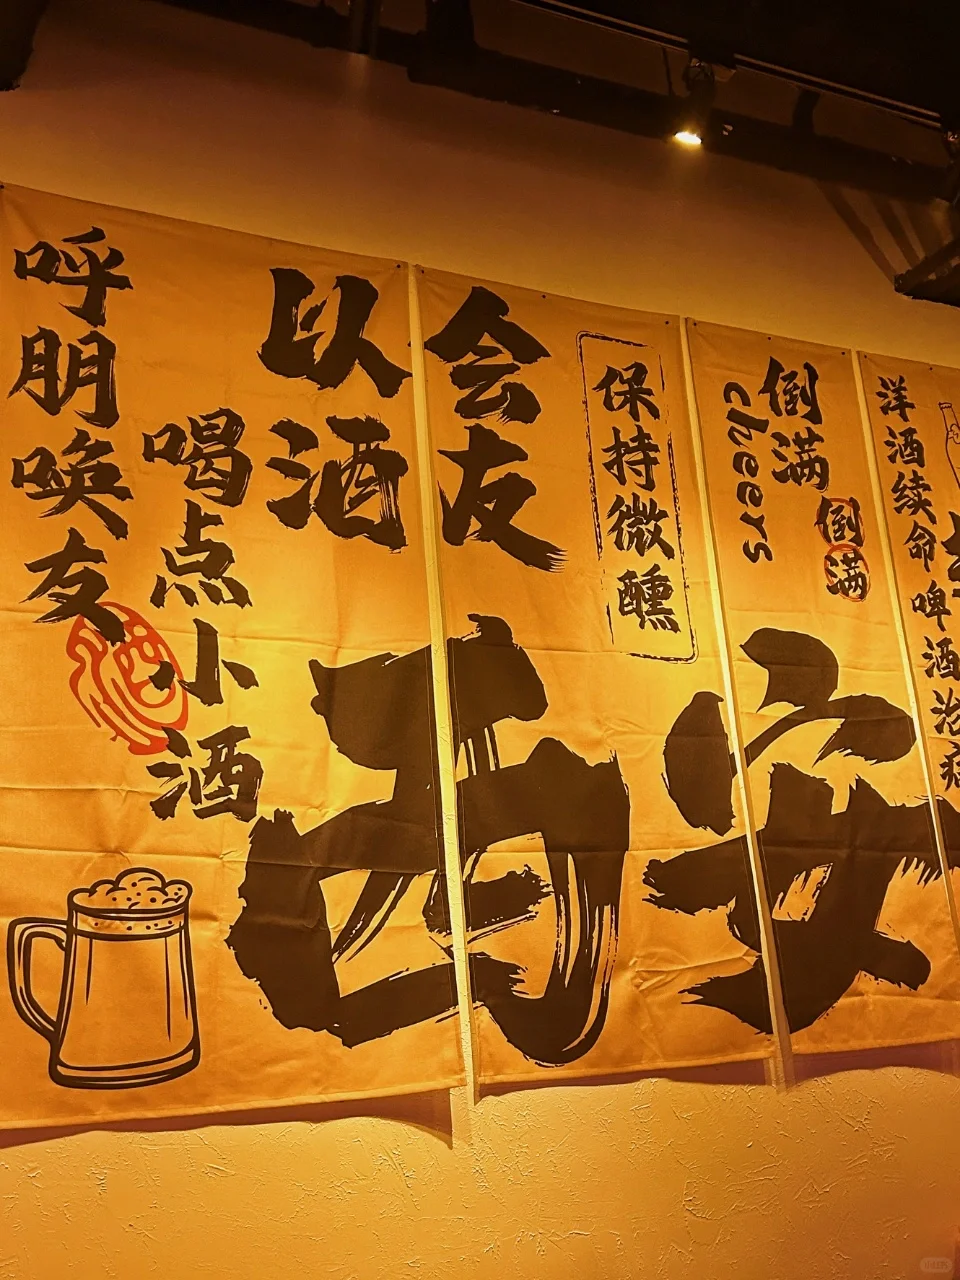 呼朋唤友
喝点小酒
以酒
会友
保持微醺
cheers
倒满
倒满
西安
洋酒续命
啤酒治病
酒